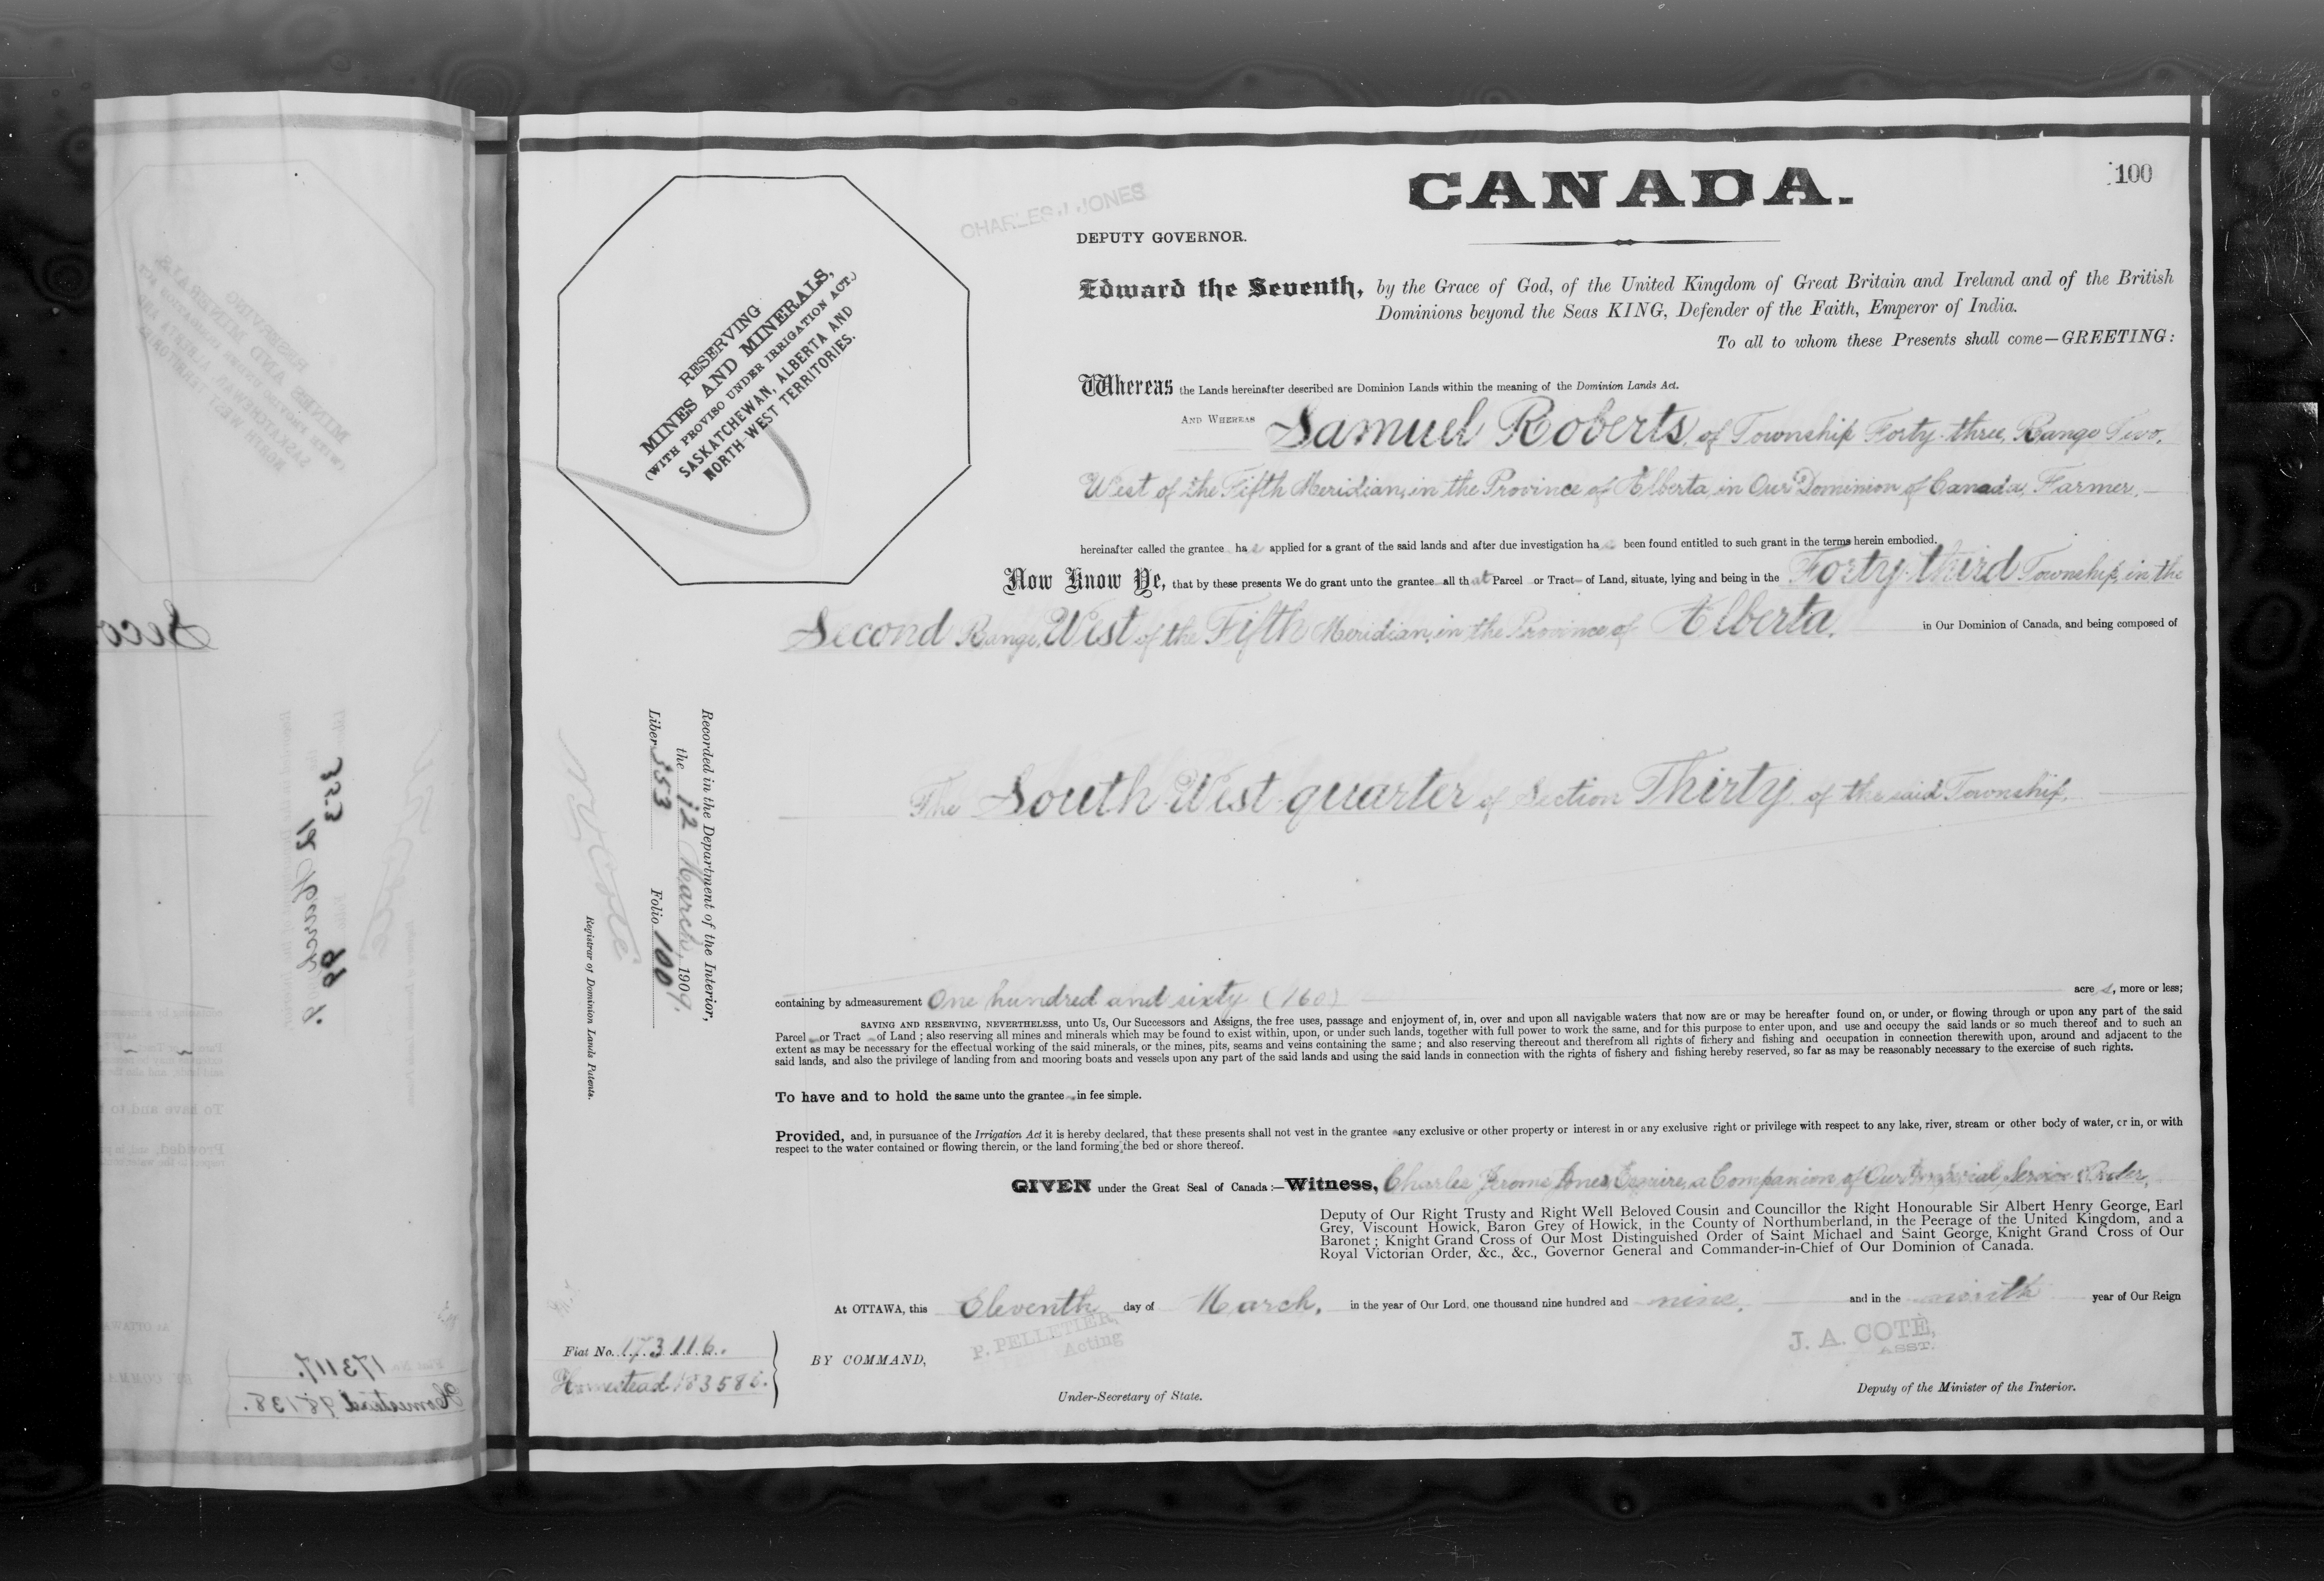 CANADA.
100
CHARLES J. JONES
DEPUTY GOVERNOR.
Edward the Seventh, by the Grace of God, of the United Kingdom of Great Britain and Ireland and of the British
Dominions beyond the Seas KING, Defender of the Faith, Emperor of India.
To all to whom these Presents shall come—GREETING:
RESERVING
MINES AND MINERALS,
(WITH PROVISO UNDER IRRIGATION ACT.)
SASKATCHEWAN, ALBERTA AND
NORTH-WEST TERRITORIES.
Whereas the Lands hereinafter described are Dominion Lands within the meaning of the Dominion Lands Act.
AND WHEREAS Samuel Roberts, of Township Forty-three, Range Two,
West of the Fifth Meridian, in the Province of Alberta, in Our Dominion of Canada, Farmer,
hereinafter called the grantee has applied for a grant of the said lands and after due investigation has been found entitled to such grant in the terms herein embodied.
Now Know Ye, that by these presents We do grant unto the grantee all that Parcel or Tract of Land, situate, lying and being in the Forty-third Township, in the
Second Range, West of the Fifth Meridian, in the Province of Alberta, in Our Dominion of Canada, and being composed of
The South West quarter of Section Thirty of the said Township,
Recorded in the Department of the Interior,
the 12 March, 1909,
Liber 353 Folio 100
N. O. Coté
Registrar of Dominion Lands Patents.
containing by admeasurement One hundred and sixty (160) acres, more or less;
SAVING AND RESERVING, NEVERTHELESS, unto Us, Our Successors and Assigns, the free uses, passage and enjoyment of, in, over and upon all navigable waters that now are or may be hereafter found on, or under, or flowing through or upon any part of the said
Parcel or Tract of Land; also reserving all mines and minerals which may be found to exist within, upon, or under such lands, together with full power to work the same, and for this purpose to enter upon, and use and occupy the said lands or so much thereof and to such an
extent as may be necessary for the effectual working of the said minerals, or the mines, pits, seams and veins containing the same; and also reserving thereout and therefrom all rights of fishery and fishing and occupation in connection therewith upon, around and adjacent to the
said lands, and also the privilege of landing from and mooring boats and vessels upon any part of the said lands and using the said lands in connection with the rights of fishery and fishing hereby reserved, so far as may be reasonably necessary to the exercise of such rights.
To have and to hold the same unto the grantee in fee simple.
Provided, and, in pursuance of the Irrigation Act it is hereby declared, that these presents shall not vest in the grantee any exclusive or other property or interest in or any exclusive right or privilege with respect to any lake, river, stream or other body of water, or in, or with
respect to the water contained or flowing therein, or the land forming the bed or shore thereof.
GIVEN under the Great Seal of Canada:—Witness, Charles Jerome Jones, Esquire, a Companion of Our Imperial Service Order,
Deputy of Our Right Trusty and Right Well Beloved Cousin and Councillor the Right Honourable Sir Albert Henry George, Earl
Grey, Viscount Howick, Baron Grey of Howick, in the County of Northumberland, in the Peerage of the United Kingdom, and a
Baronet; Knight Grand Cross of Our Most Distinguished Order of Saint Michael and Saint George, Knight Grand Cross of Our
Royal Victorian Order, &c., &c., Governor General and Commander-in-Chief of Our Dominion of Canada.
At OTTAWA, this Eleventh day of March, in the year of Our Lord, one thousand nine hundred and nine, and in the ninth year of Our Reign
Fiat No. 173116.
Homestead 183586.
BY COMMAND,
P. PELLETIER,
Acting
Under-Secretary of State.
J. A. COTÉ,
ASST.
Deputy of the Minister of the Interior.
Seco
353
12 March
99
Fiat No. 173117.
Homestead 98138.